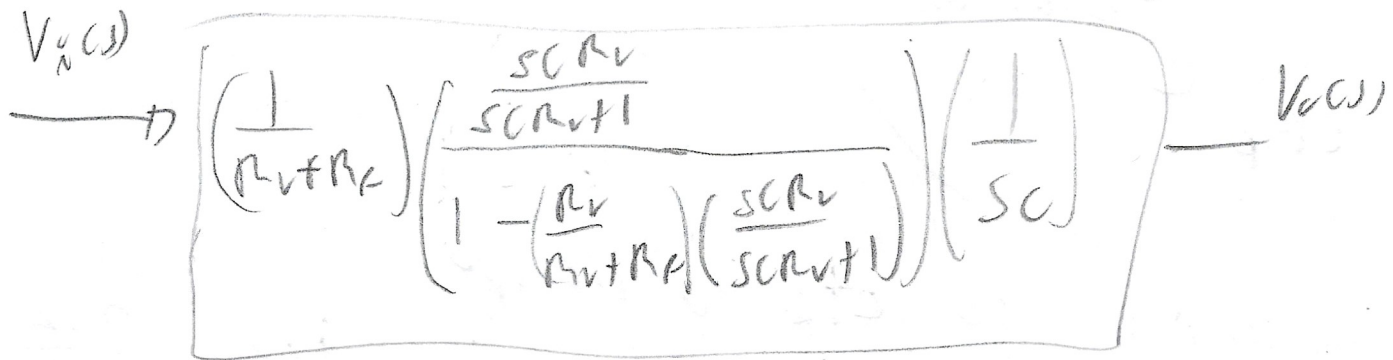 Vi(s)
(1/(Rv+Rf)) ((sCRv/(sCRv+1))/(1-(Rv/(Rv+Rf))(sCRv/(sCRv+1)))) (1/sC)
Vc(s)